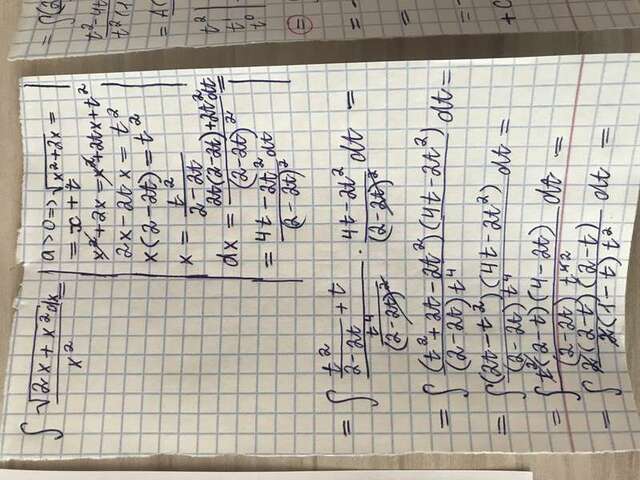 ∫ √(2x + x²) dx / x² =
a > 0 => √(x² + 2x) =
= x + t
x² + 2x = x² + 2tx + t²
2x - 2tx = t²
x(2 - 2t) = t²
x = t² / (2 - 2t)
dx = (2t(2 - 2t) + 2t² dt) / (2 - 2t)² =
= (4t - 2t² dt) / (2 - 2t)²
= ∫ (t² / (2 - 2t) + t) / (t⁴ / (2 - 2t)²) · (4t - 2t²) / (2 - 2t)² dt =
= ∫ (t² + 2t - 2t²)(4t - 2t²) / (2 - 2t) t⁴ dt =
= ∫ (2t - t²)(4t - 2t²) / (2 - 2t) t⁴ dt =
= ∫ t²(2 - t)(4 - 2t) / (2 - 2t) t⁴² dt =
= ∫ 2(2 - t)(2 - t) / 2(1 - t) t² dt =